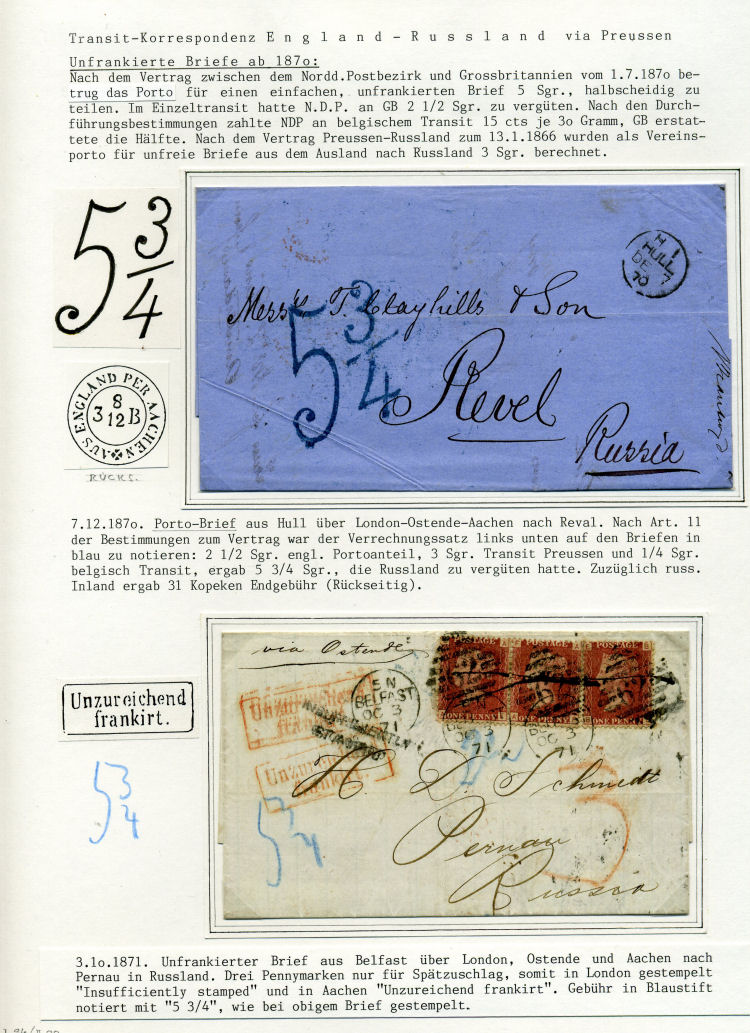 Transit-Korrespondenz E n g l a n d - R u s s l a n d via Preussen
Unfrankierte Briefe ab 187o:
Nach dem Vertrag zwischen dem Nordd.Postbezirk und Grossbritannien vom 1.7.187o be-
trug das Porto für einen einfachen, unfrankierten Brief 5 Sgr., halbscheidig zu
teilen. Im Einzeltransit hatte N.D.P. an GB 2 1/2 Sgr. zu vergüten. Nach den Durch-
führungsbestimmungen zahlte NDP an belgischem Transit 15 cts je 3o Gramm, GB erstat-
tete die Hälfte. Nach dem Vertrag Preussen-Russland zum 13.1.1866 wurden als Vereins-
porto für unfreie Briefe aus dem Ausland nach Russland 3 Sgr. berechnet.
5 3/4
H 1
HULL
DE 7
70
Messrs T. Clayhills & Son
5 3/4
Revel
Russia
AUS ENGLAND PER AACHEN
8
3 12 B
RÜCKS.
7.12.187o. Porto-Brief aus Hull über London-Ostende-Aachen nach Reval. Nach Art. 11
der Bestimmungen zum Vertrag war der Verrechnungssatz links unten auf den Briefen in
blau zu notieren: 2 1/2 Sgr. engl. Portoanteil, 3 Sgr. Transit Preussen und 1/4 Sgr.
belgisch Transit, ergab 5 3/4 Sgr., die Russland zu vergüten hatte. Zuzüglich russ.
Inland ergab 31 Kopeken Endgebühr (Rückseitig).
via Ostende
POSTAGE POSTAGE POSTAGE
ONE PENNY ONE PENNY ONE PENNY
5 N
BELFAST
OC 3
71
Unzureichend
frankirt.
Unzureichend
frankirt.
INSUFFICIENTLY
STAMPED
Unzureichend
frankirt.
H. D. Schmedt
5 3/4
5 3/4
Pernau
Russia
3.1o.1871. Unfrankierter Brief aus Belfast über London, Ostende und Aachen nach
Pernau in Russland. Drei Pennymarken nur für Spätzuschlag, somit in London gestempelt
"Insufficiently stamped" und in Aachen "Unzureichend frankirt". Gebühr in Blaustift
notiert mit "5 3/4", wie bei obigem Brief gestempelt.